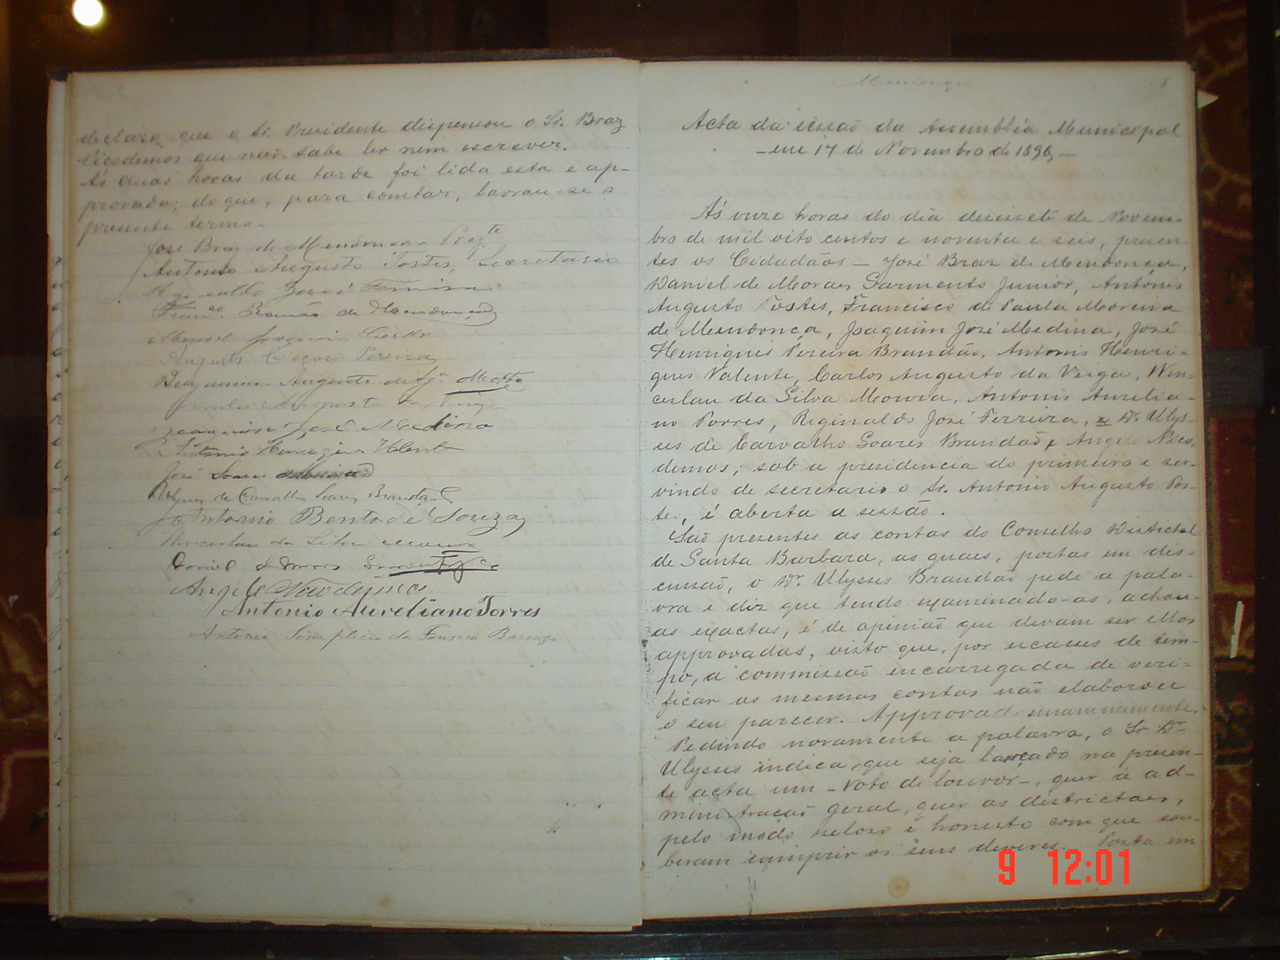 declaro, que o Sr. Presidente dispensou o Sr. Braz
Nicodemos que não sabe ler nem escrever.
Ás duas horas da tarde foi lida esta e ap-
provada; do que, para constar, lavrou-se o
presente termo.
José Braz de Mendonça
Antonio Augusto Fortes, Secretario
José Ferreira
de Mendonça
Manoel Joaquim
Augusto Cezar Pereira
Augusto da Motta
Augusto da Veiga
Joaquim José Medina
Antonio Henriques Valente
José
Ulysses de Carvalho Soares Brandão
Antonio Bento de Souza
Wenceslau da Silva Moura
Daniel de Moraes Sarmento
Angelo Nicodemos
Antonio Aureliano Torres
Antonio Simplicio da Fonseca
Acta da sessão da Assembléa Municipal
em 17 de Novembro de 1896
Ás onze horas do dia desessete de Novem-
bro de mil oito centos e noventa e seis, presen-
tes os Cidadãos - José Braz de Mendonça,
Daniel de Moraes Sarmento Junior, Antonio
Augusto Fortes, Francisco de Paula Moreira
de Mendonça, Joaquim José Medina, José
Henriques Pereira Brandão, Antonio Henri-
ques Valente, Carlos Augusto da Veiga, Wen-
ceslau da Silva Moura, Antonio Aurelia-
no Torres, Reginaldo José Ferreira, Dr. Ulys-
ses de Carvalho Soares Brandão e Angelo Nico-
demos, sob a presidencia do primeiro e ser-
vindo de secretario o Sr. Antonio Augusto For-
tes, é aberta a sessão.
São presentes as contas do Conselho Districtal
de Santa Barbara, as quaes, postas em dis-
cussão, o Dr. Ulysses Brandão pede a pala-
vra e diz que tendo examinado-as, achou-
as exactas, é de opinião que devam ser ellas
approvadas, visto que, por escasses de tem-
po, a commissão encarregada de veri-
ficar as mesmas contas não elaborou
o seu parecer. Approvado unanimemente.
Pedindo novamente a palavra, o Sr. Dr.
Ulysses indica, que seja lançado na presen-
te acta um - Voto de louvor -, quer á ad-
ministração geral, quer as districtaes,
pelo modo zeloso e honesto com que sou-
beram cumprir os seus deveres. Posta em
9 12:01